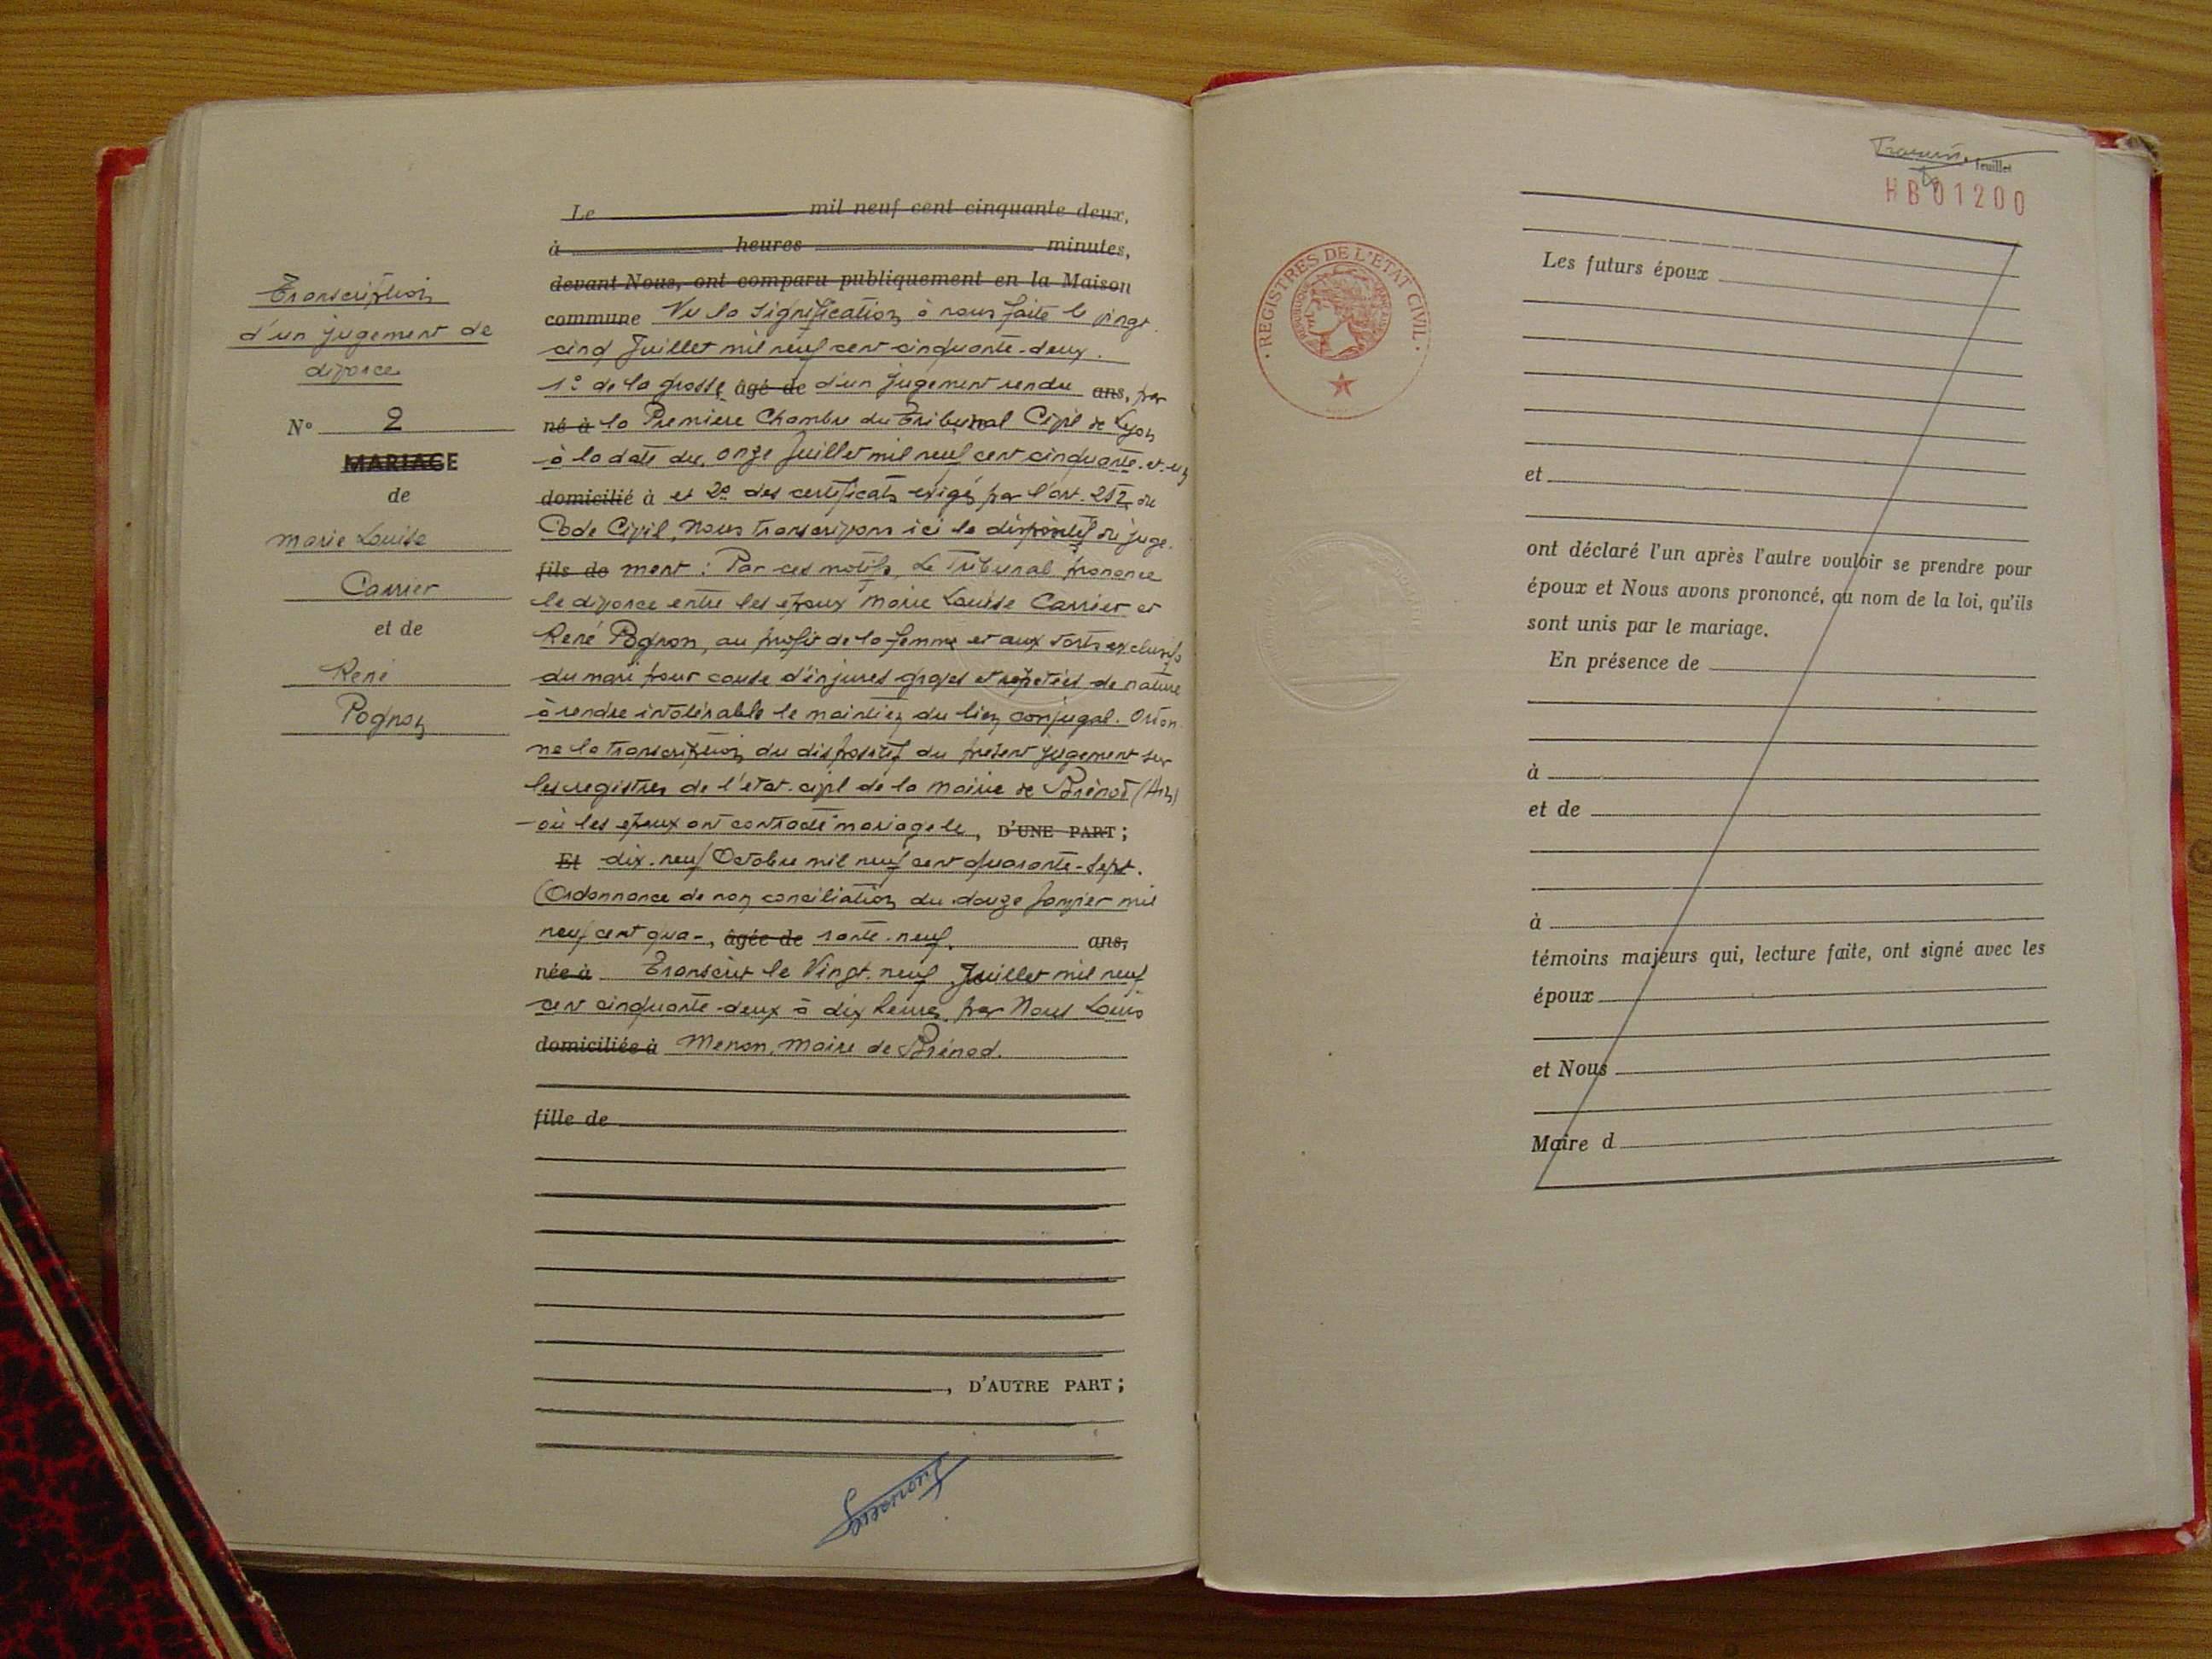 Transcription
d'un jugement de
divorce
N° 2
MARIAGE
de
Marie Louise
Carrier
et de
René
Pognon
Le mil neuf cent cinquante deux,
à heures minutes,
devant Nous, ont comparu publiquement en la Maison
commune Vu la signification à nous faite le vingt
cinq Juillet mil neuf cent cinquante-deux.
1° de la grosse, âgé de d'un jugement rendu ans, par
né à la Première Chambre du Tribunal Civil de Lyon
à la date du onze Juillet mil neuf cent cinquante-et-un
domicilié à et 2° des certificats exigés par l'art. 252 du
Code Civil, Nous transcrivons ici le dispositif du juge-
fils de ment : Par ces motifs, Le Tribunal prononce
le divorce entre les époux Marie Louise Carrier et
René Pognon, au profit de la femme et aux torts exclusifs
du mari pour cause d'injures graves et répétées de nature
à rendre intolérable le maintien du lien conjugal. Ordon-
ne la transcription du dispositif du présent jugement sur
les registres de l'état-civil de la mairie de Brénod (Ain)
où les époux ont contracté mariage le, D'UNE PART ;
Et dix-neuf Octobre mil neuf cent quarante-sept.
(Ordonnance de non conciliation du douze Janvier mil
neuf cent qua-, âgée de rante-neuf. ans,
née à Transcrit le Vingt-neuf Juillet mil neuf
cent cinquante-deux à dix heures, par Nous Louis
domiciliée à Menon, Maire de Brénod.
fille de
, D'AUTRE PART ;
feuillet
HB01200
REGISTRES DE L'ÉTAT CIVIL
RÉPUBLIQUE FRANÇAISE
Les futurs époux
et
ont déclaré l'un après l'autre vouloir se prendre pour
époux et Nous avons prononcé, au nom de la loi, qu'ils
sont unis par le mariage.
En présence de
à
et de
à
témoins majeurs qui, lecture faite, ont signé avec les
époux
et Nous
Maire d